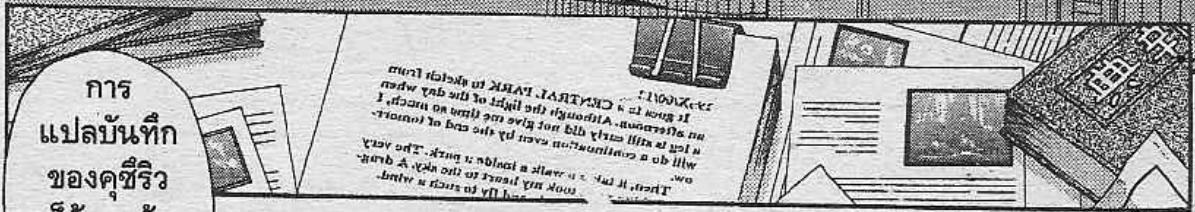 การ
แปลบันทึก
ของคุซึริว
It goes to a CENTRAL PARK to sketch from
an afternoon. Although the light of the day when
a leg is still early did not give me time so much, I
will do a continuation even by the end of tomorr-
ow.
Then, it a walk a inside a park. The very
took my heart to the sky. A drag-
and fly to such a wind.